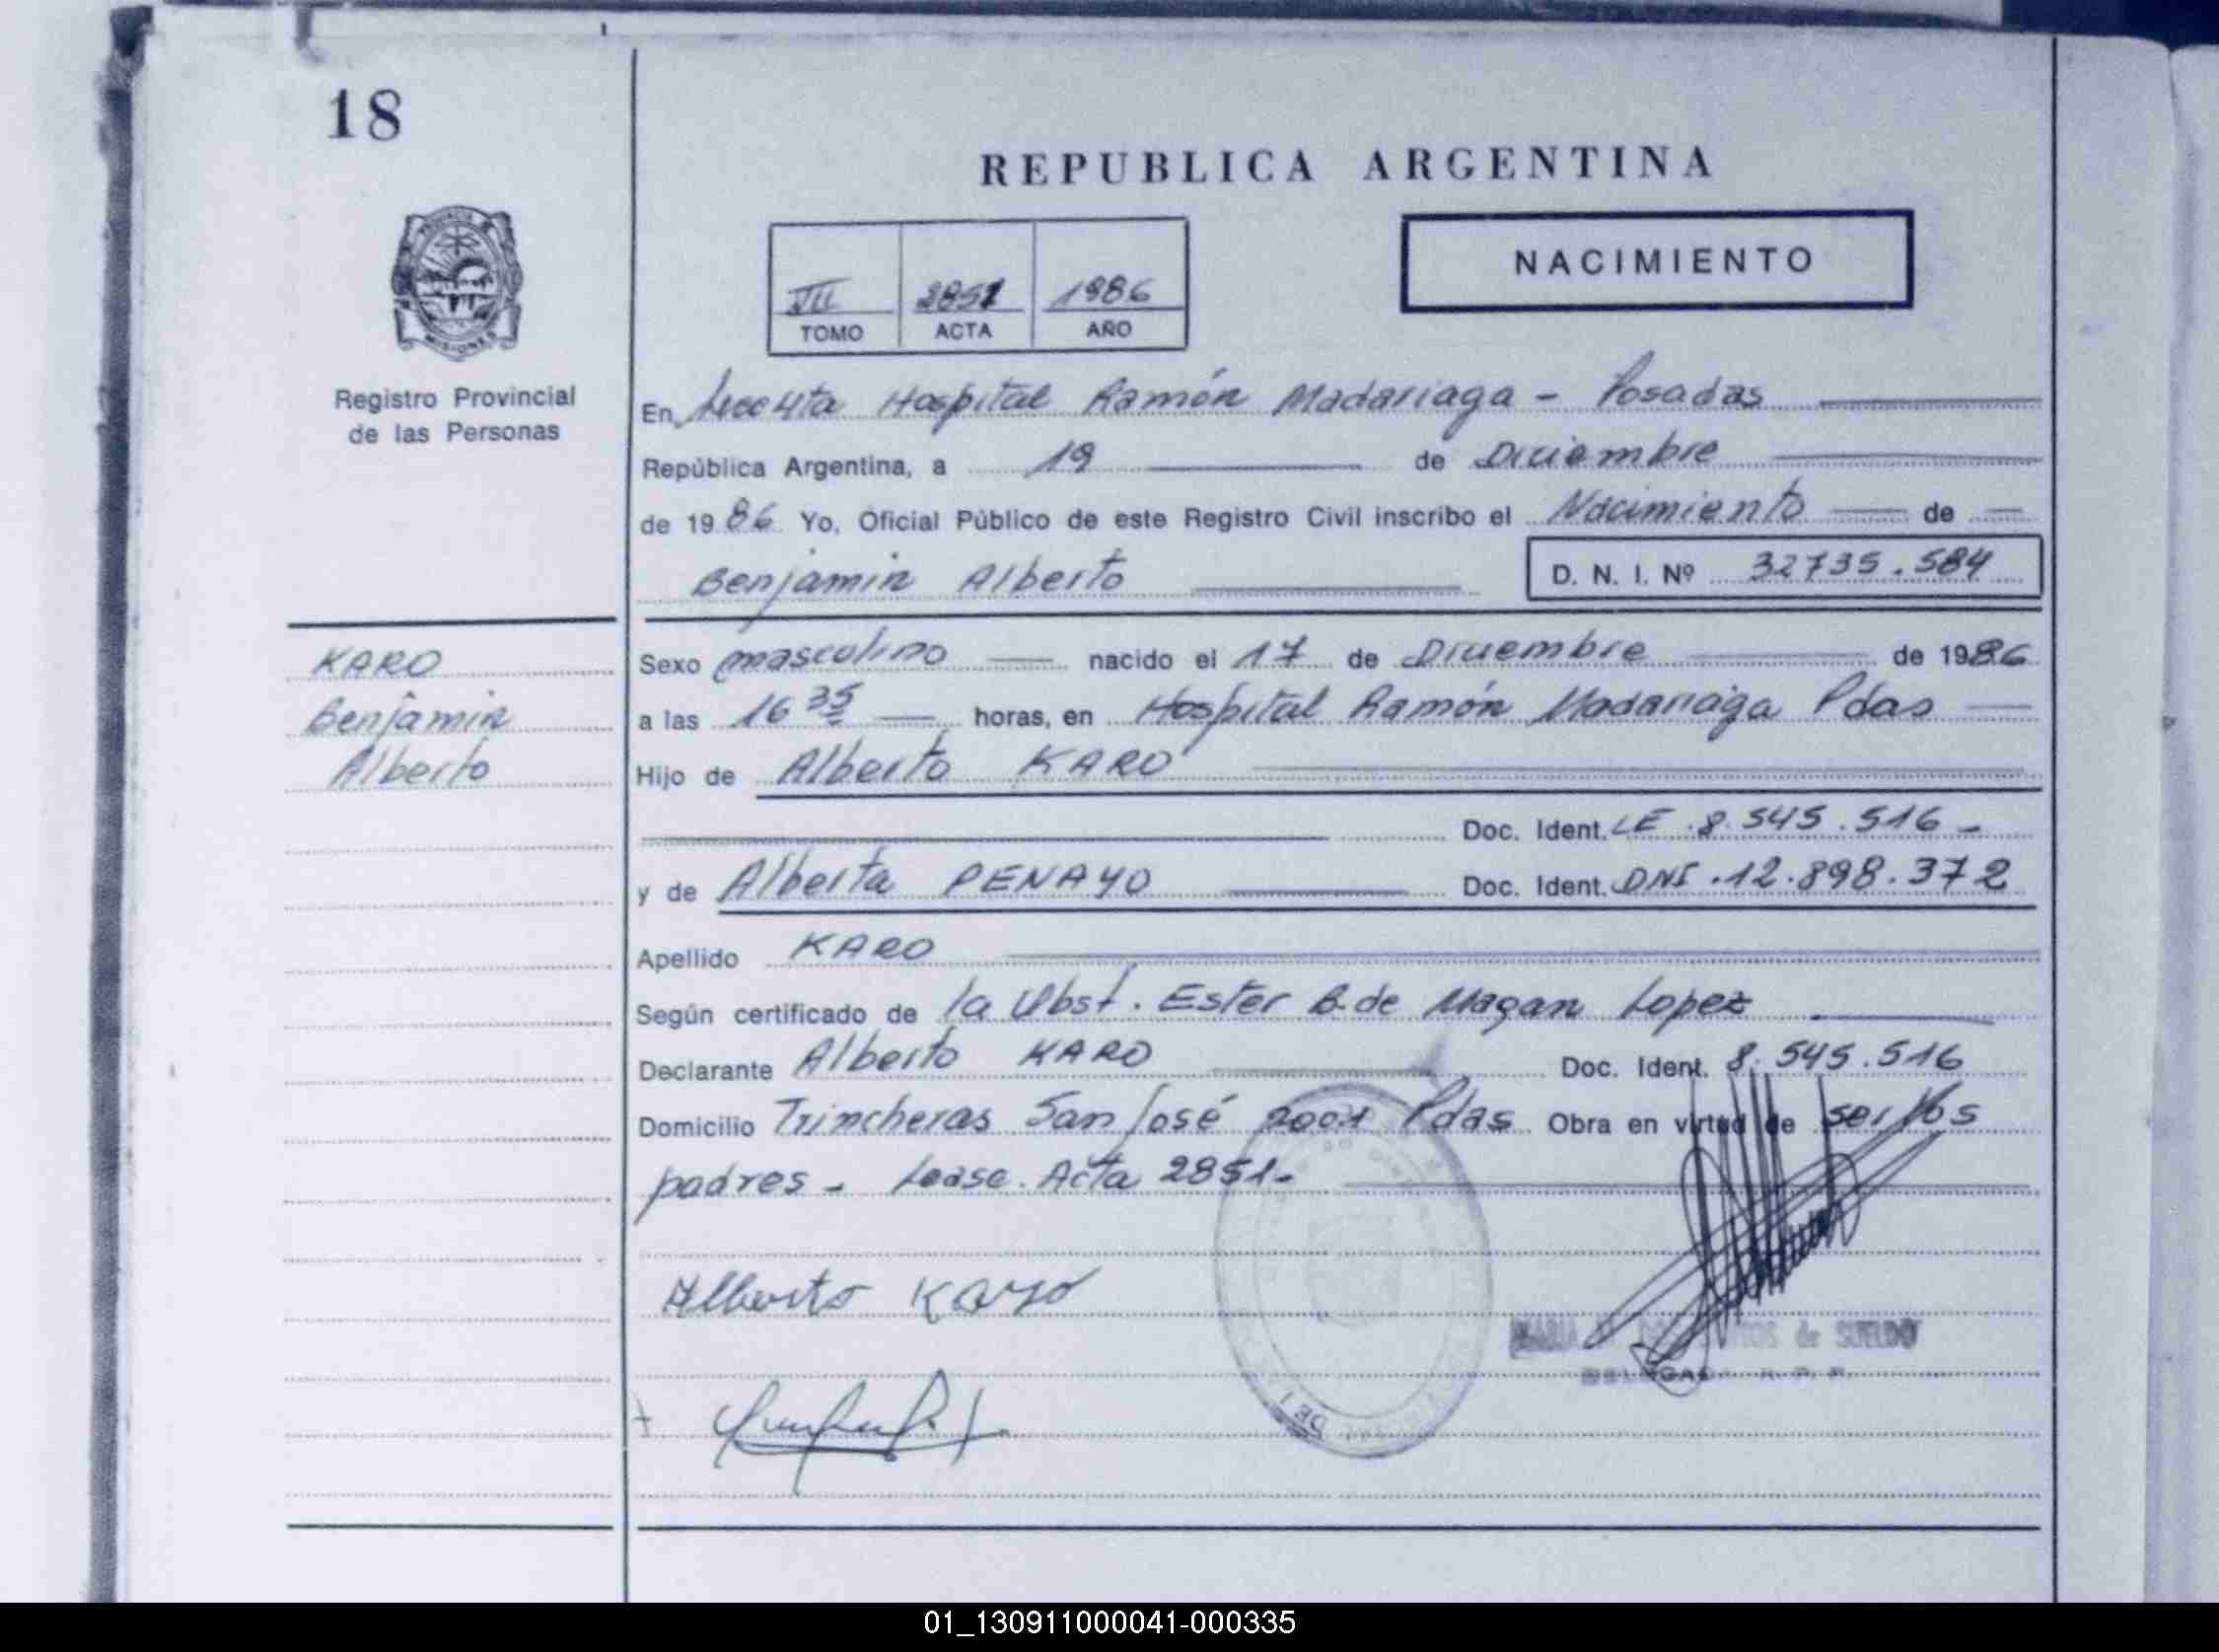 18
REPUBLICA ARGENTINA
PROVINCIA DE
MISIONES
Registro Provincial
de las Personas
NACIMIENTO
VII 2851 1986
TOMO ACTA AÑO
En Hospital Ramón Madariaga - Posadas
República Argentina, a 19 de Diciembre
de 1986. Yo, Oficial Público de este Registro Civil inscribo el Nacimiento de
Benjamin Alberto D. N. I. Nº 32735.584
KARO
Benjamin
Alberto
Sexo masculino nacido el 17 de Diciembre de 1986
a las 16 35 horas, en Hospital Ramón Madariaga Pdas
Hijo de Alberto KARO
Doc. Ident. LE 8.545.516 -
y de Alberta PENAYO Doc. Ident. DNI. 12.898.372
Apellido KARO
Según certificado de la Obst. Ester B. de Magan Lopez
Declarante Alberto KARO Doc. Ident. 8.545.516
Domicilio Trincheras San José 2001 Pdas Obra en virtud de ser los
padres - Lease. Acta 2851-
Alberto Karo
MARIA de SUELDO
01_130911000041-000335